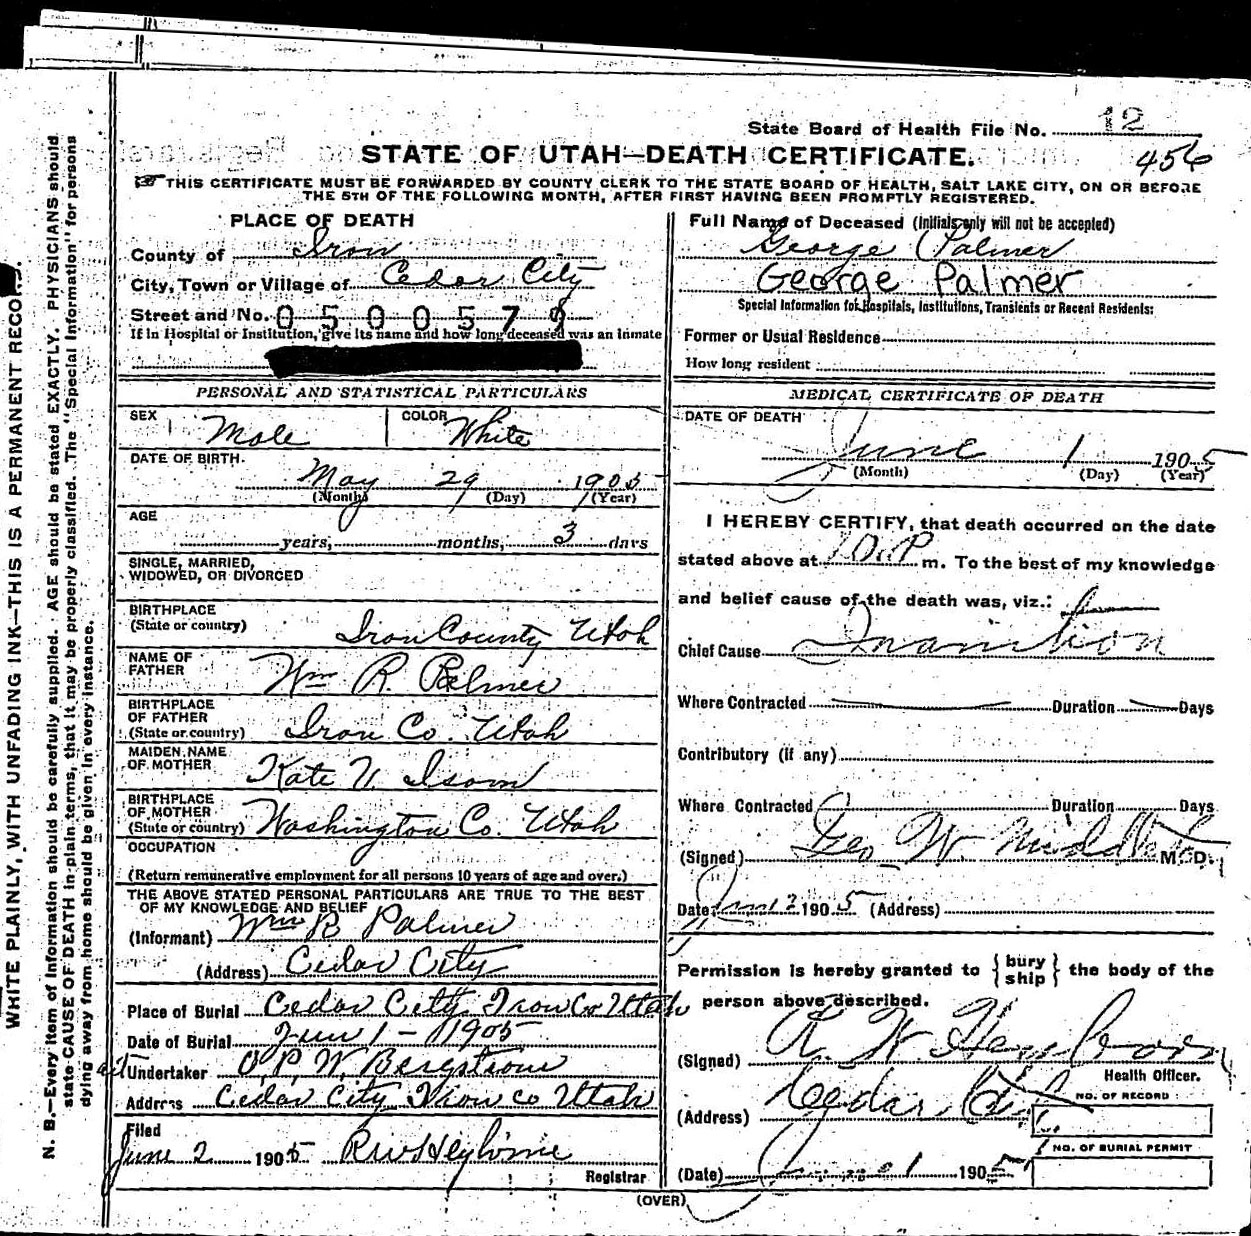 State Board of Health File No. 12
456
STATE OF UTAH—DEATH CERTIFICATE.
THIS CERTIFICATE MUST BE FORWARDED BY COUNTY CLERK TO THE STATE BOARD OF HEALTH, SALT LAKE CITY, ON OR BEFORE
THE 5TH OF THE FOLLOWING MONTH, AFTER FIRST HAVING BEEN PROMPTLY REGISTERED.
PLACE OF DEATH
County of Iron
City, Town or Village of Cedar City
Street and No. 0500579
If in Hospital or Institution, give its name and how long deceased was an inmate
PERSONAL AND STATISTICAL PARTICULARS
SEX Male COLOR White
DATE OF BIRTH.
May 29 1905
(Month) (Day) (Year)
AGE
years, months, 3 days
SINGLE, MARRIED,
WIDOWED, OR DIVORCED
BIRTHPLACE
(State or country) Iron County Utah
NAME OF
FATHER Wm R. Palmer
BIRTHPLACE
OF FATHER
(State or country) Iron Co. Utah
MAIDEN NAME
OF MOTHER Kate V. Isom
BIRTHPLACE
OF MOTHER
(State or country) Washington Co. Utah
OCCUPATION
(Return remunerative employment for all persons 10 years of age and over.)
THE ABOVE STATED PERSONAL PARTICULARS ARE TRUE TO THE BEST
OF MY KNOWLEDGE AND BELIEF
(Informant) Wm R Palmer
(Address) Cedar City
Place of Burial Cedar City Iron Co Utah
Date of Burial June 1 - 1905
act Undertaker O. P. W. Bergstrom
Address Cedar City Iron Co Utah
Filed
June 2 1905 R W Heyborne
Registrar
Full Name of Deceased (Initials only will not be accepted)
George Palmer
George Palmer
Special Information for Hospitals, Institutions, Transients or Recent Residents:
Former or Usual Residence
How long resident
MEDICAL CERTIFICATE OF DEATH
DATE OF DEATH
June 1 1905
(Month) (Day) (Year)
I HEREBY CERTIFY, that death occurred on the date
stated above at 10 P m. To the best of my knowledge
and belief cause of the death was, viz.:
Chief Cause Inanition
Where Contracted Duration Days
Contributory (if any)
Where Contracted Duration Days
(Signed) Geo W Middleton M. D.
Date June 2 1905 (Address)
Permission is hereby granted to { bury ship } the body of the
person above described.
(Signed) R. W Heyborne
Health Officer.
(Address) Cedar City
NO. OF RECORD
NO. OF BURIAL PERMIT
(Date) June 1 1905
(OVER)
WRITE PLAINLY, WITH UNFADING INK—THIS IS A PERMANENT RECORD.
N. B.—Every item of information should be carefully supplied. AGE should be stated EXACTLY. PHYSICIANS should
state CAUSE OF DEATH in plain terms, that it may be properly classified. The "Special Information" for persons
dying away from home should be given in every instance.